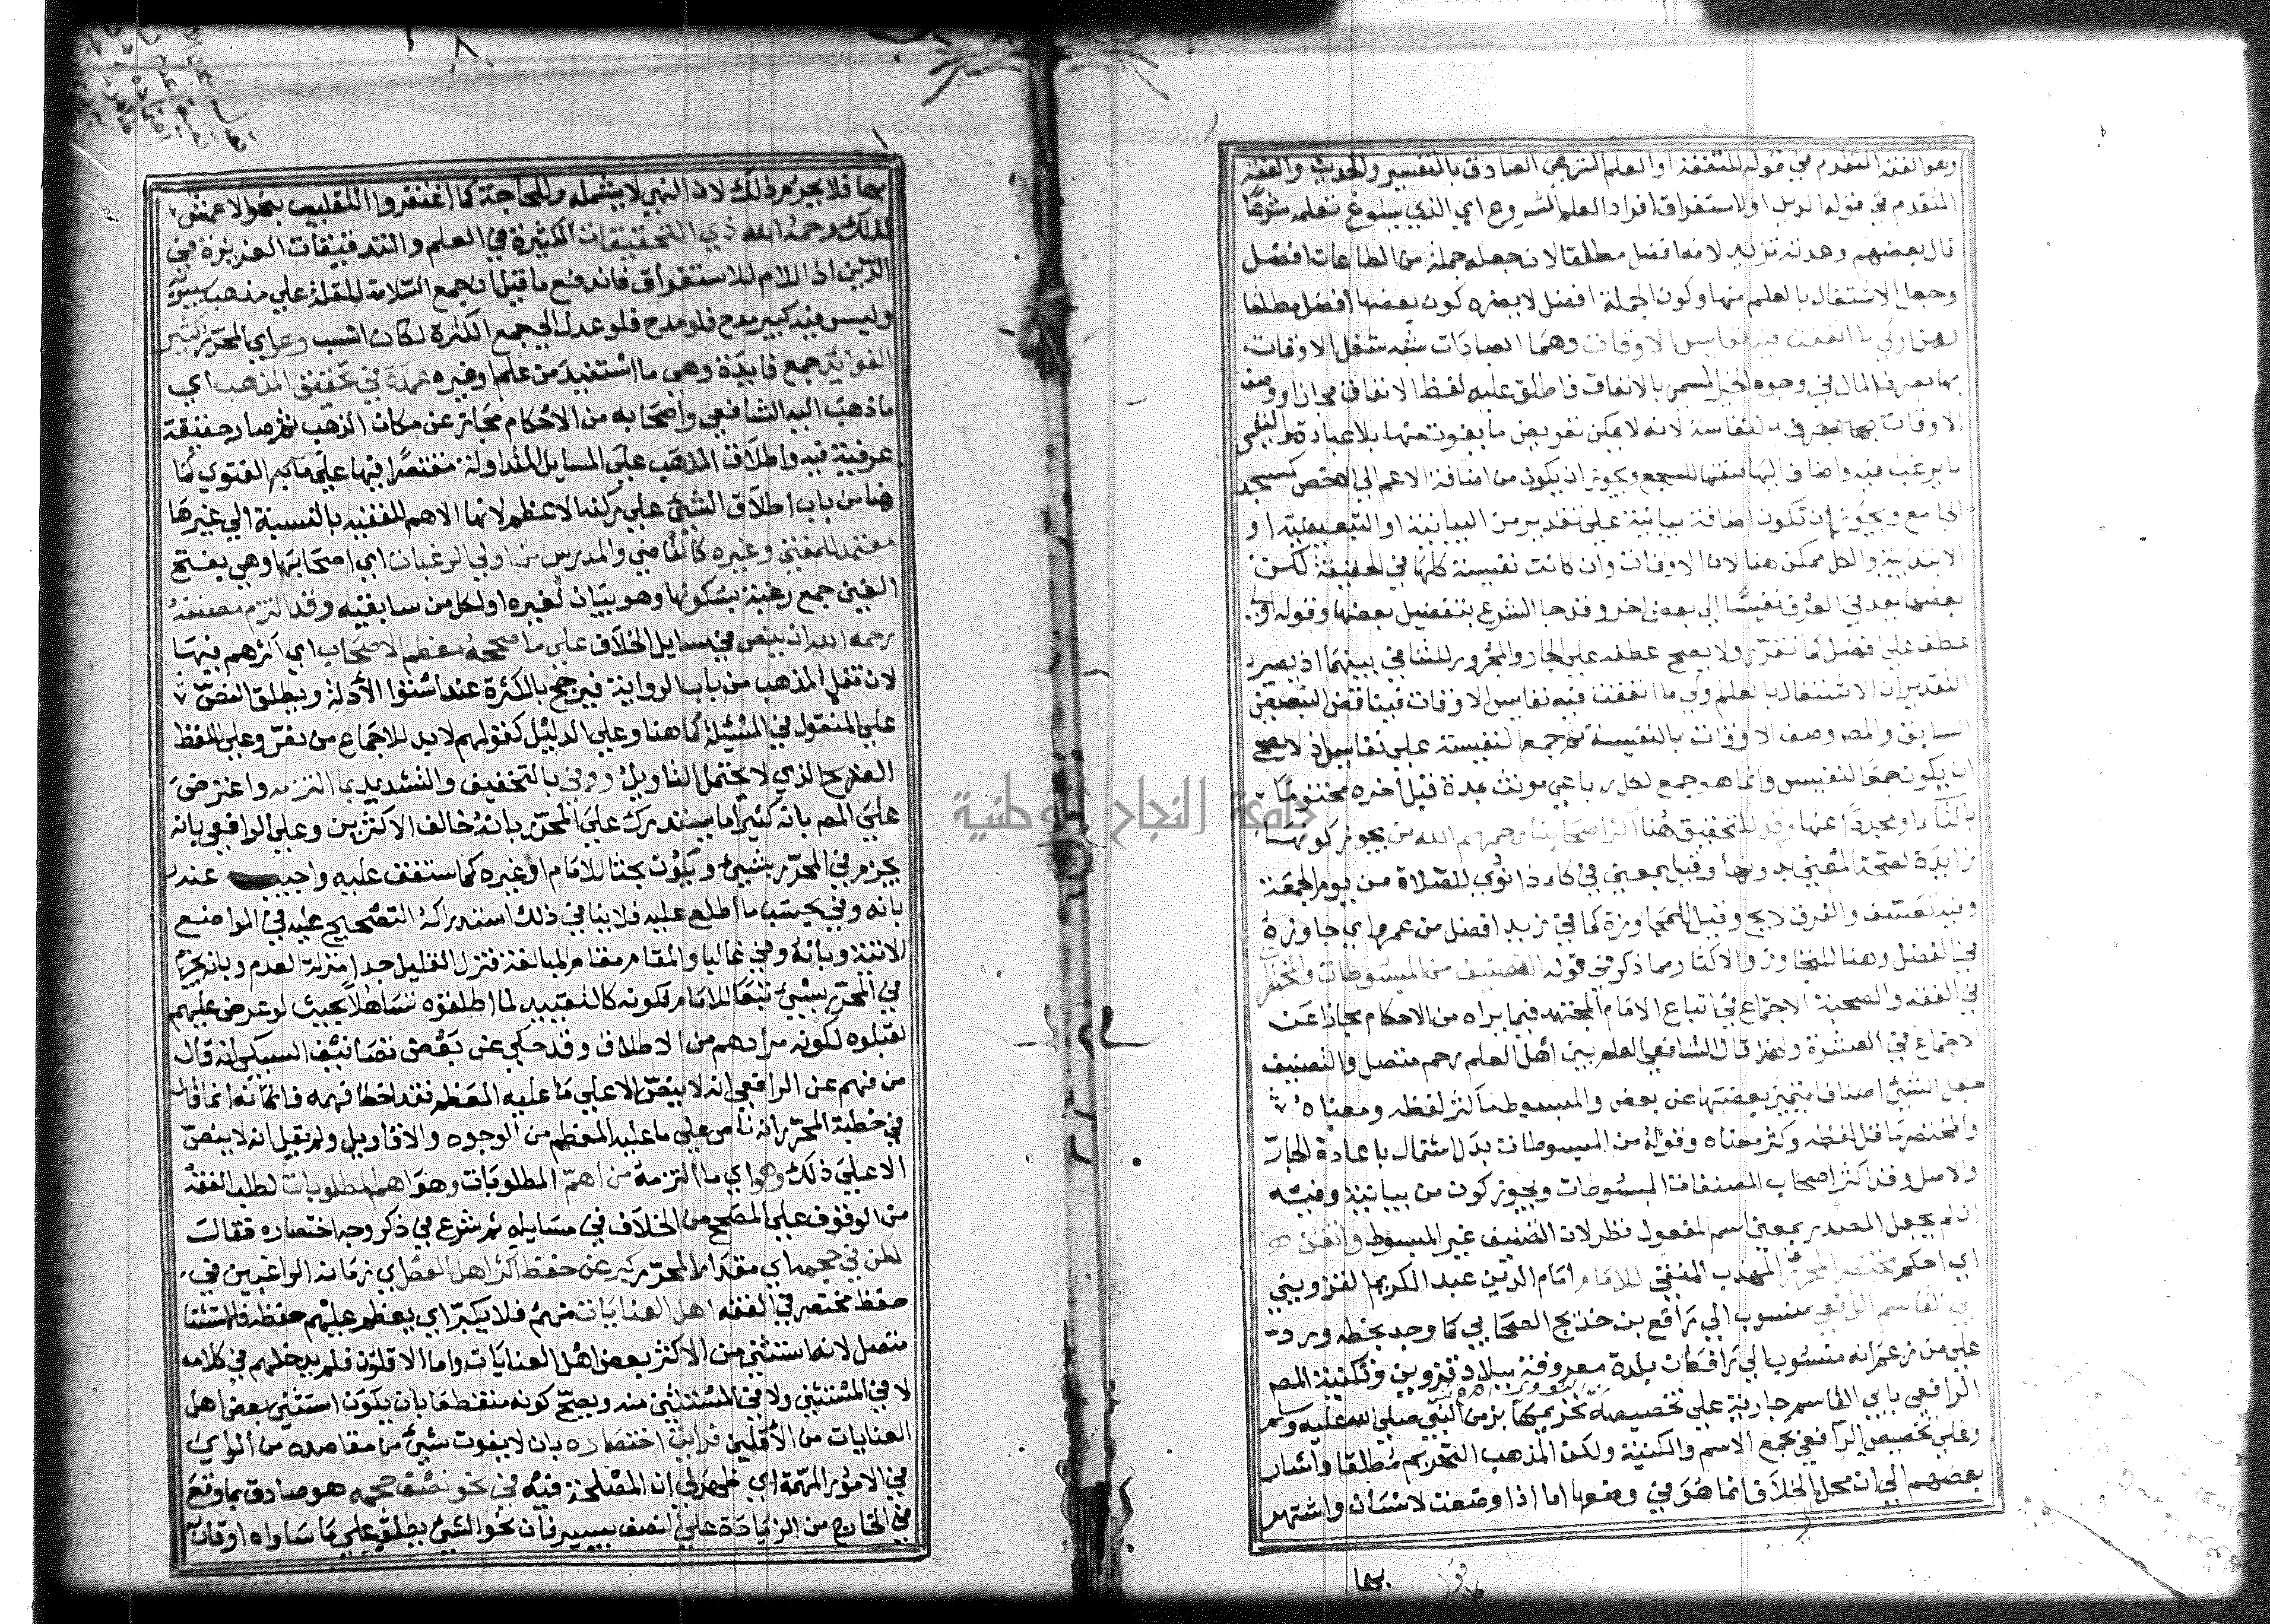 وهو الفقه المتقدم في قوله للتفقه او العلم الشرعي الصادق بالتفسير والحديث والفقه
المتقدم في قوله الدين او لاستغراق افراد العلم المشروع اي الذي يسوغ تعلمه شرعا
قال بعضهم وهذه تزيد لانها افضل مطلقا لان جعله جملة من الطاعات افضل
وجعل الاشتغال بالعلم منها وكون الجملة افضل لا يضره كون بعضها افضل مطلقا
ومن اولي ما انفقت فيه نفايس الاوقات وهما العبادات شبه شغل الاوقات
بها بصرف المال في وجوه الخير المسمي بالانفاق فاطلق عليه لفظ الانفاق مجازا ووصف
الاوقات بالنفاسة لانه لا يمكن تعويض ما يفوت منها بلا عبادة والنفيس
ما يرغب فيه واضاف اليها صفتها للسجع ويجوز ان يكون من اضافة الاعم الي الاخص كمسجد
الجامع ويجوز ان تكون اضافة بيانية علي تقدير من البيانية او التبعيضية او
الابتدائية والكل ممكن هنا لان الاوقات وان كانت نفيسة كلها في الحقيقة لكن
بعضها يعد في العرف نفيسا الي بعض اخر وقد جا الشرع بتفضيل بعضها وقوله اولي
عطف علي افضل كما تقرر ولا يصح عطفه علي الجار والمجرور للتنافي بينهما اذ يصير
التقدير ان الاشتغال بالعلم اولي ما انفقت فيه نفايس الاوقات فيناقض التبعيض
السابق والمص وصف الاوقات بالنفيسة ثم جمع النفيسة علي نفايس اذ لا يصح
ان يكون جمعا لنفيس وانما هو جمع لكل رباعي مونث بمدة قبل اخره مختوما
بالتاء او مجردا عنها وقد للتحقيق هنا اكثر اصحابنا رحمهم الله من يجوز كونها
زايدة لصحة المعني بدونها وقيل بمعني في كاذا نودي للصلاة من يوم الجمعة
وفيه تعسف والفرق لايح وقيل للمجاوزة كما في زيد افضل من عمرو اي جاوزه
في الفضل وهنا للتجاوز والاكثار مما ذكر في قوله التصنيف من المبسوطات والمختصرات
في الفقه والصحبة الاجتماع في اتباع الامام المجتهد فيما يراه من الاحكام مجازا عن
الاجتماع في العشرة ولهذا قال الشافعي العلم بين اهل العلم رحم متصل والتصنيف
جعل الشيئ اصنافا متميزة بعضها عن بعض والمبسوط ما كثر لفظه ومعناه
والمختصر ما قل لفظه وكثر معناه وقوله من المبسوطات بدل اشتمال باعادة الجار
والاصل وقد اكثر اصحاب المصنفات المبسوطات ويجوز كون من بيانية وفيه
ان لم يجعل المصدر بمعني اسم المفعول نظر لان التصنيف غير المبسوط واتقن
اي احكم مختصر المحرر المهذب المنقي للامام امام الدين عبد الكريم القزويني
ابي القاسم الرافعي منسوب الي رافع بن خديج الصحابي كما وجد بخطه ورد
علي من زعم انه منسوب الي رافعان بلدة معروفة ببلاد قزوين وتكنية المص
الرافعي بابي القاسم جارية علي تخصيصه تحريمها بزمن النبي صلي الله عليه وسلم
وعلي تخصيص الرافعي بجمع الاسم والكنية ولكن المذهب التحريم مطلقا واشار
بعضهم الي ان محل الخلاف انما هو في وضعها اما اذا وضعت لانسان واشتهر
بها
بها فلا يحرم ذلك لان النهي لا يشمله وللحاجة كما اغتفروا التلقيب بنحو الاعمش
لذلك رحمه الله ذي التحقيقات الكثيرة في العلم والتدقيقات الغزيرة في
الدين اذ اللام للاستغراق فاندفع ما قيل ان جمع السلامة للقلة علي مذهب سيبويه
وليس فيه كبير مدح فلو مدح فلو عدل الي جمع الكثرة لكان انسب وعراي المحرر كثير
الفوايد جمع فايدة وهي ما استفيد من علم او غيره عمدة في تحقيق المذهب اي
ما ذهب اليه الشافعي واصحابه من الاحكام مجاز عن مكان الذهب ثم صار حقيقة
عرفية فيه واطلاق المذهب علي المسايل المتداولة مقتصرا فيها علي ما به الفتوي كما
هنا من باب اطلاق الشيئ علي ركنه الاعظم لانها الاهم للفقيه بالنسبة الي غيرها
معتمد للمفتي وغيره كالقاضي والمدرس من اولي الرغبات اي اصحابها وهي بفتح
الغين جمع رغبة بسكونها وهو بيان لغيره او لكل من سابقيه وقد التزم مصنفه
رحمه الله ان ينص في مسايل الخلاف علي ما صححه معظم الاصحاب اي اكثرهم فيها
لان نقل المذهب من باب الرواية فيرجح بالكثرة عند استوا الأدلة ويطلق النص
علي المنقول في المسئلة كما هنا وعلي الدليل كقولهم لابد للاجماع من نص وعلي اللفظ
الصريح الذي لا يحتمل التاويل ووفي بالتخفيف والتشديد بما التزمه واعترض
علي المص بانه كثيرا ما يستدرك علي المحرر بانه خالف الاكثرين وعلي الرافعي بانه
يجزم في المحرر بشيئ ويكون بحثا للامام او غيره كما ستقف عليه واجيب عنه
بانه وفي بحسب ما اطلع عليه فلا ينافي ذلك استدراكه التصحيح عليه في المواضع
الاتية وبانه وفي غالبا والمقام مقام المبالغة فنزل القليل جدا منزلة العدم وبانه يجزم
في المحرر بشيئ تبعا للامام لكونه كالتقييد لما اطلقوه تساهلا بحيث لو عرض عليهم
لقبلوه لكونه مرادهم من الاطلاق وقد حكي عن بعض تصانيف السبكي انه قال
من فهم عن الرافعي انه لا ينص الا علي ما عليه المعظم فقد اخطا فهمه فانه انما قال
في خطبة المحرر انه ناص علي ما عليه المعظم من الوجوه والاقاويل ولم يقل انه لا ينص
الا علي ذلك وهو اي ما التزمه من اهم المطلوبات وهو اهم المطلوبات لطلب الفقه
من الوقوف علي المصحح من الخلاف في مسايله ثم شرع في ذكر وجه اختصاره فقال
لكن في حجمه اي مقدار المحرر كبر عن حفظ اكثر اهل العصر اي زمانه الراغبين في
حفظ مختصر في الفقه اهل العنايات منهم فلا يكبر اي يعظم عليهم حفظه فالمستثنا
متصل لانه استثني من الاكثر بعض اهل العنايات واما الاقلون فلم يدخلهم في كلامه
لا في المستثني ولا في المستثني منه ويصح كونه منقطعا بان يكون استثني بعض اهل
العنايات من الأقلين فرايت اختصاره بان لا يفوت شيئ من مقاصده من الراي
في الامور المهمة اي ظهر لي ان المصلحة فيه في نحو نصف حجمه هو صادق بما وقع
في الخارج من الزيادة علي النصف بيسير فان نحو الشيئ يطلق علي ما ساواه او قاربه